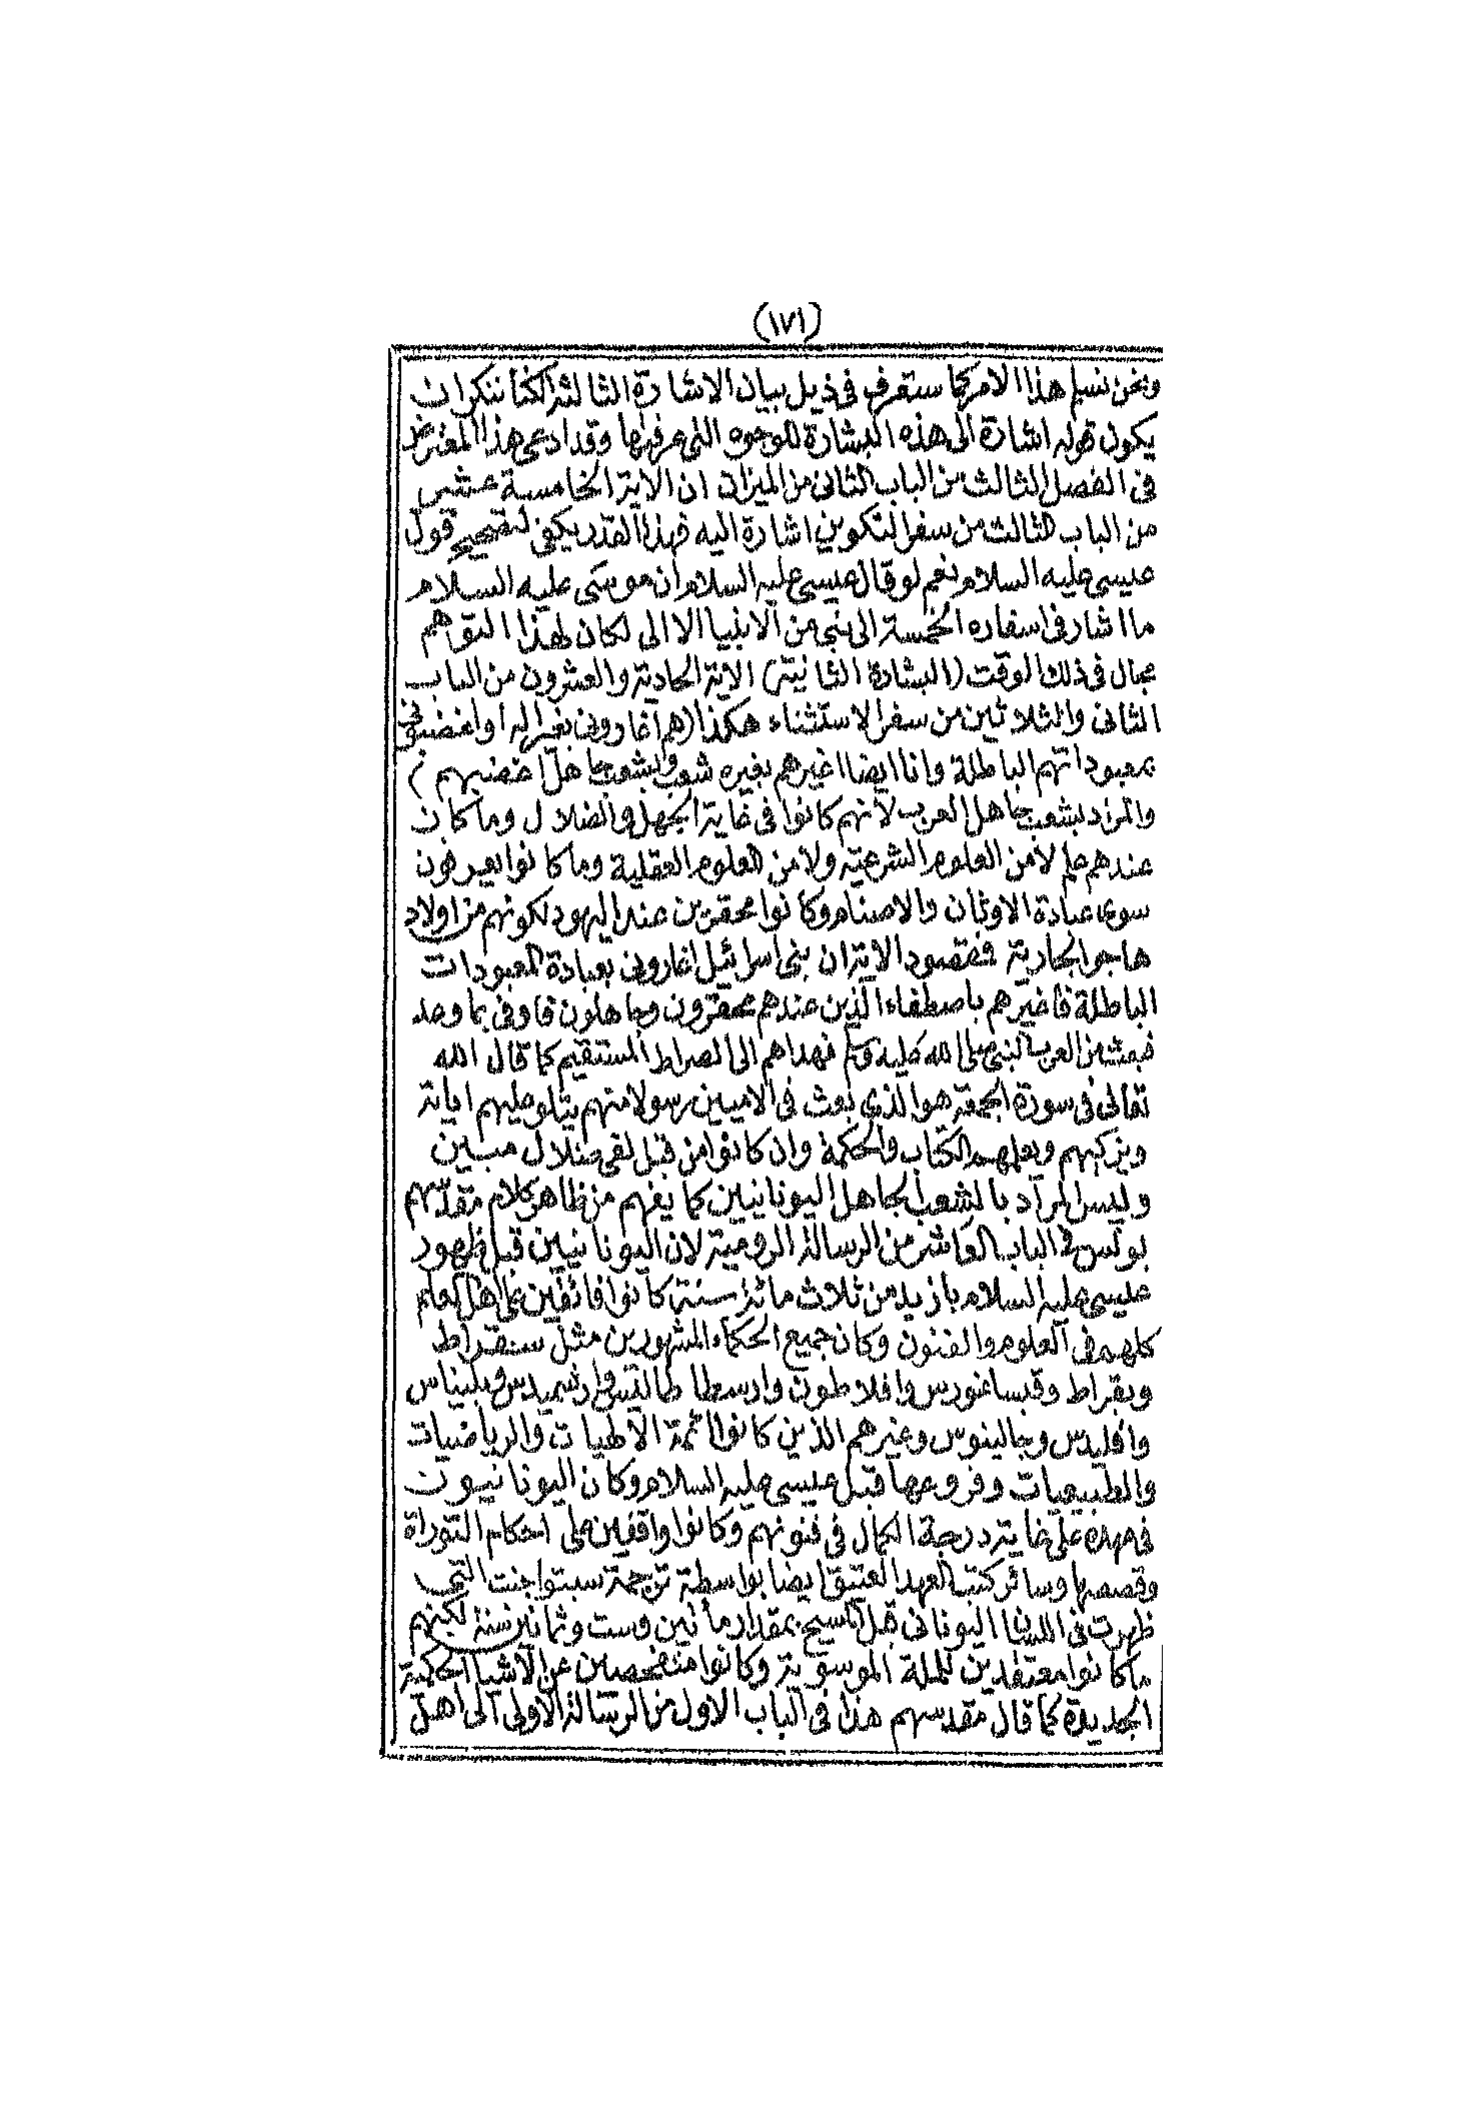 (١٧١)
ونحن نسلم هذا الامر كما ستعرف في ذيل بيان الاشارة الثالثة لكننا ننكر ان
يكون قوله اشارة الى هذه البشارة للوجوه التي عرفتها وقد ادعى هذا المعترض
في الفصل الثالث من الباب الثاني من الميزان ان الاية الخامسة عشر
من الباب الثالث من سفر التكوين اشارة اليه فهذا القدر يكفي لتصحيح قول
عيسى عليه السلام نعم لو قال عيسى عليه السلام ان موسى عليه السلام
ما اشار في اسفاره الخمسة الى نبي من الانبيا الا الى لكان لهذا التوهم
مجال في ذلك الوقت (البشارة الثانية) الاية الحادية والعشرون من الباب
الثاني والثلاثين من سفر الاستثناء هكذا (هم اغاروني بغير اله واغضبوني
بمعبوداتهم الباطلة وانا ايضا اغيرهم بغيره شعب وبشعب جاهل اغضبهم)
والمراد بشعب جاهل العرب لانهم كانوا في غاية الجهل والضلال وما كان
عندهم علم لا من العلوم الشرعية ولا من العلوم العقلية وما كانوا يعرفون
سوى عبادة الاوثان والاصنام وكانوا محقرين عند اليهود لكونهم من اولاد
هاجر الجارية فمقصود الاية ان بني اسرائيل اغاروني بعبادة المعبودات
الباطلة فاغيرهم باصطفاء الذين عندهم محقرون وجاهلون فاوفى بما وعد
فبعث من العرب النبي صلى الله عليه وسلم فهداهم الى الصراط المستقيم كما قال الله
تعالى في سورة الجمعة هو الذي بعث في الاميين رسولا منهم يتلو عليهم اياته
ويزكيهم ويعلمهم الكتاب والحكمة وان كانوا من قبل لفي ضلال مبين
وليس المراد بالشعب الجاهل اليونانيين كما يفهم من ظاهر كلام مقدسهم
بولس في الباب العاشر من الرسالة الرومية لان اليونانيين قبل ظهور
عيسى عليه السلام بازيد من ثلاث مائة سنة كانوا فائقين على اهل العلم
كلهم في العلوم والفنون وكان جميع الحكماء المشهورين مثل سقراط
وبقراط وفيساغورس وافلاطون وارسطا طاليس وارشميدس وبليناس
واقليدس وجالينوس وغيرهم الذين كانوا ائمة الالهيات والرياضيات
والطبيعيات وفروعها قبل عيسى عليه السلام وكان اليونانيون
في عهده على غاية درجة الكمال في فنونهم وكانوا واقفين على احكام التوراة
وقصصها وسائر كتب العهد العتيق ايضا بواسطة ترجمة سبتواجنت التي
ظهرت في اللسان اليوناني قبل المسيح بمقدار مأتين وست وثمانين سنة لكنهم
ما كانوا معتقدين للملة الموسوية وكانوا متفحصين عن الاشيا الحكمية
الجديدة كما قال مقدسهم هذا في الباب الاول من الرسالة الاولى الى اهل